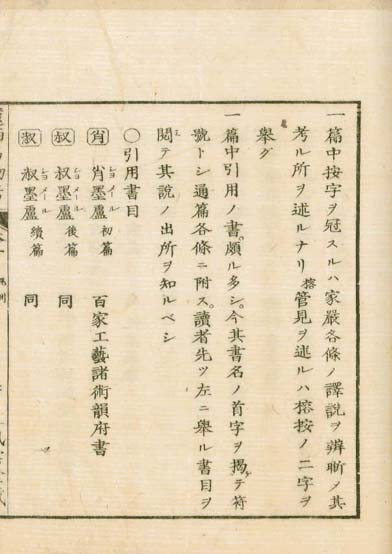 一篇中按字ヲ冠スルハ家嚴各條ノ譯説ヲ辨晣ノ其
考ル所ヲ述ルナリ榕管見ヲ述ルハ榕按ノ二字ヲ
擧グ
一篇中引用ノ書頗ル多シ。今其書名ノ首字ヲ揭ゲテ符
號トシ通篇各條ニ附ス。讀者先ツ左ニ擧ル書目ヲ
閲テ其説ノ出所ヲ知ルベシ
○引用書目
肖 肖墨盧 ショメール 初篇 百家工藝諸術韻府書
叔 叔墨盧 ショメール 後篇 同
淑 淑墨盧 ショメール 續篇 同